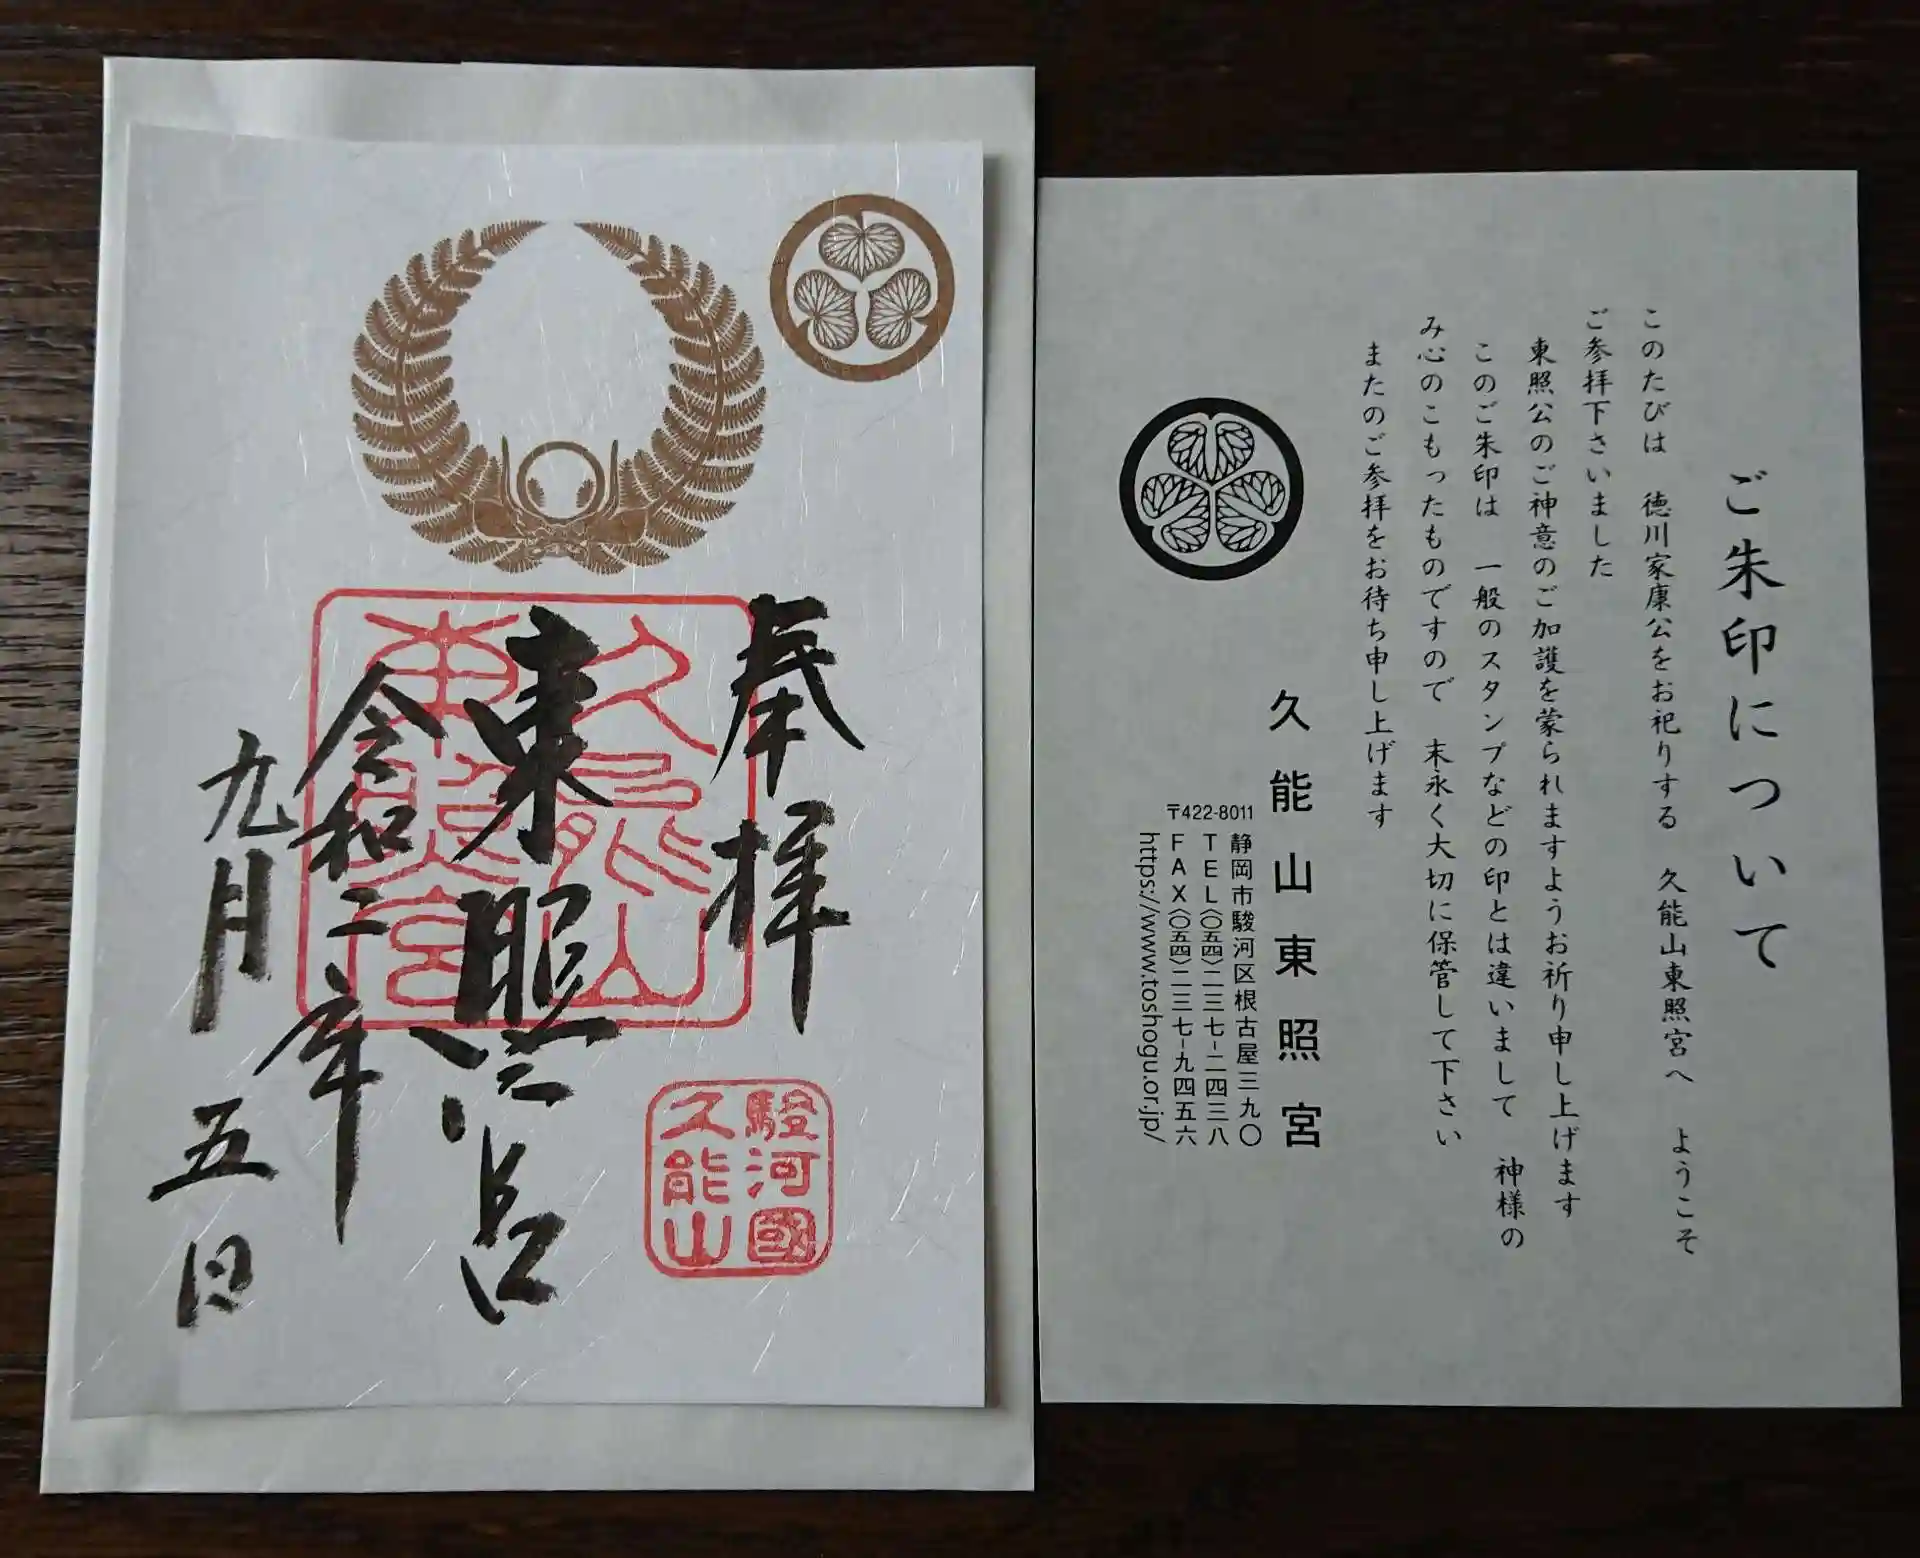 奉拝
東照宮
令和二年
九月五日
久能山
東照宮
駿河國
久能山
ご朱印について
このたびは 徳川家康公をお祀りする 久能山東照宮へ ようこそ
ご参拝下さいました
東照公のご神意のご加護を蒙られますようお祈り申し上げます
このご朱印は 一般のスタンプなどの印とは違いまして 神様の
み心のこもったものですので 末永く大切に保管して下さい
またのご参拝をお待ち申し上げます
久能山東照宮
〒422-8011
静岡市駿河区根古屋三九〇
TEL〈〇五四〉二三七-二四三八
FAX〈〇五四〉二三七-九四五六
https://www.toshogu.or.jp/